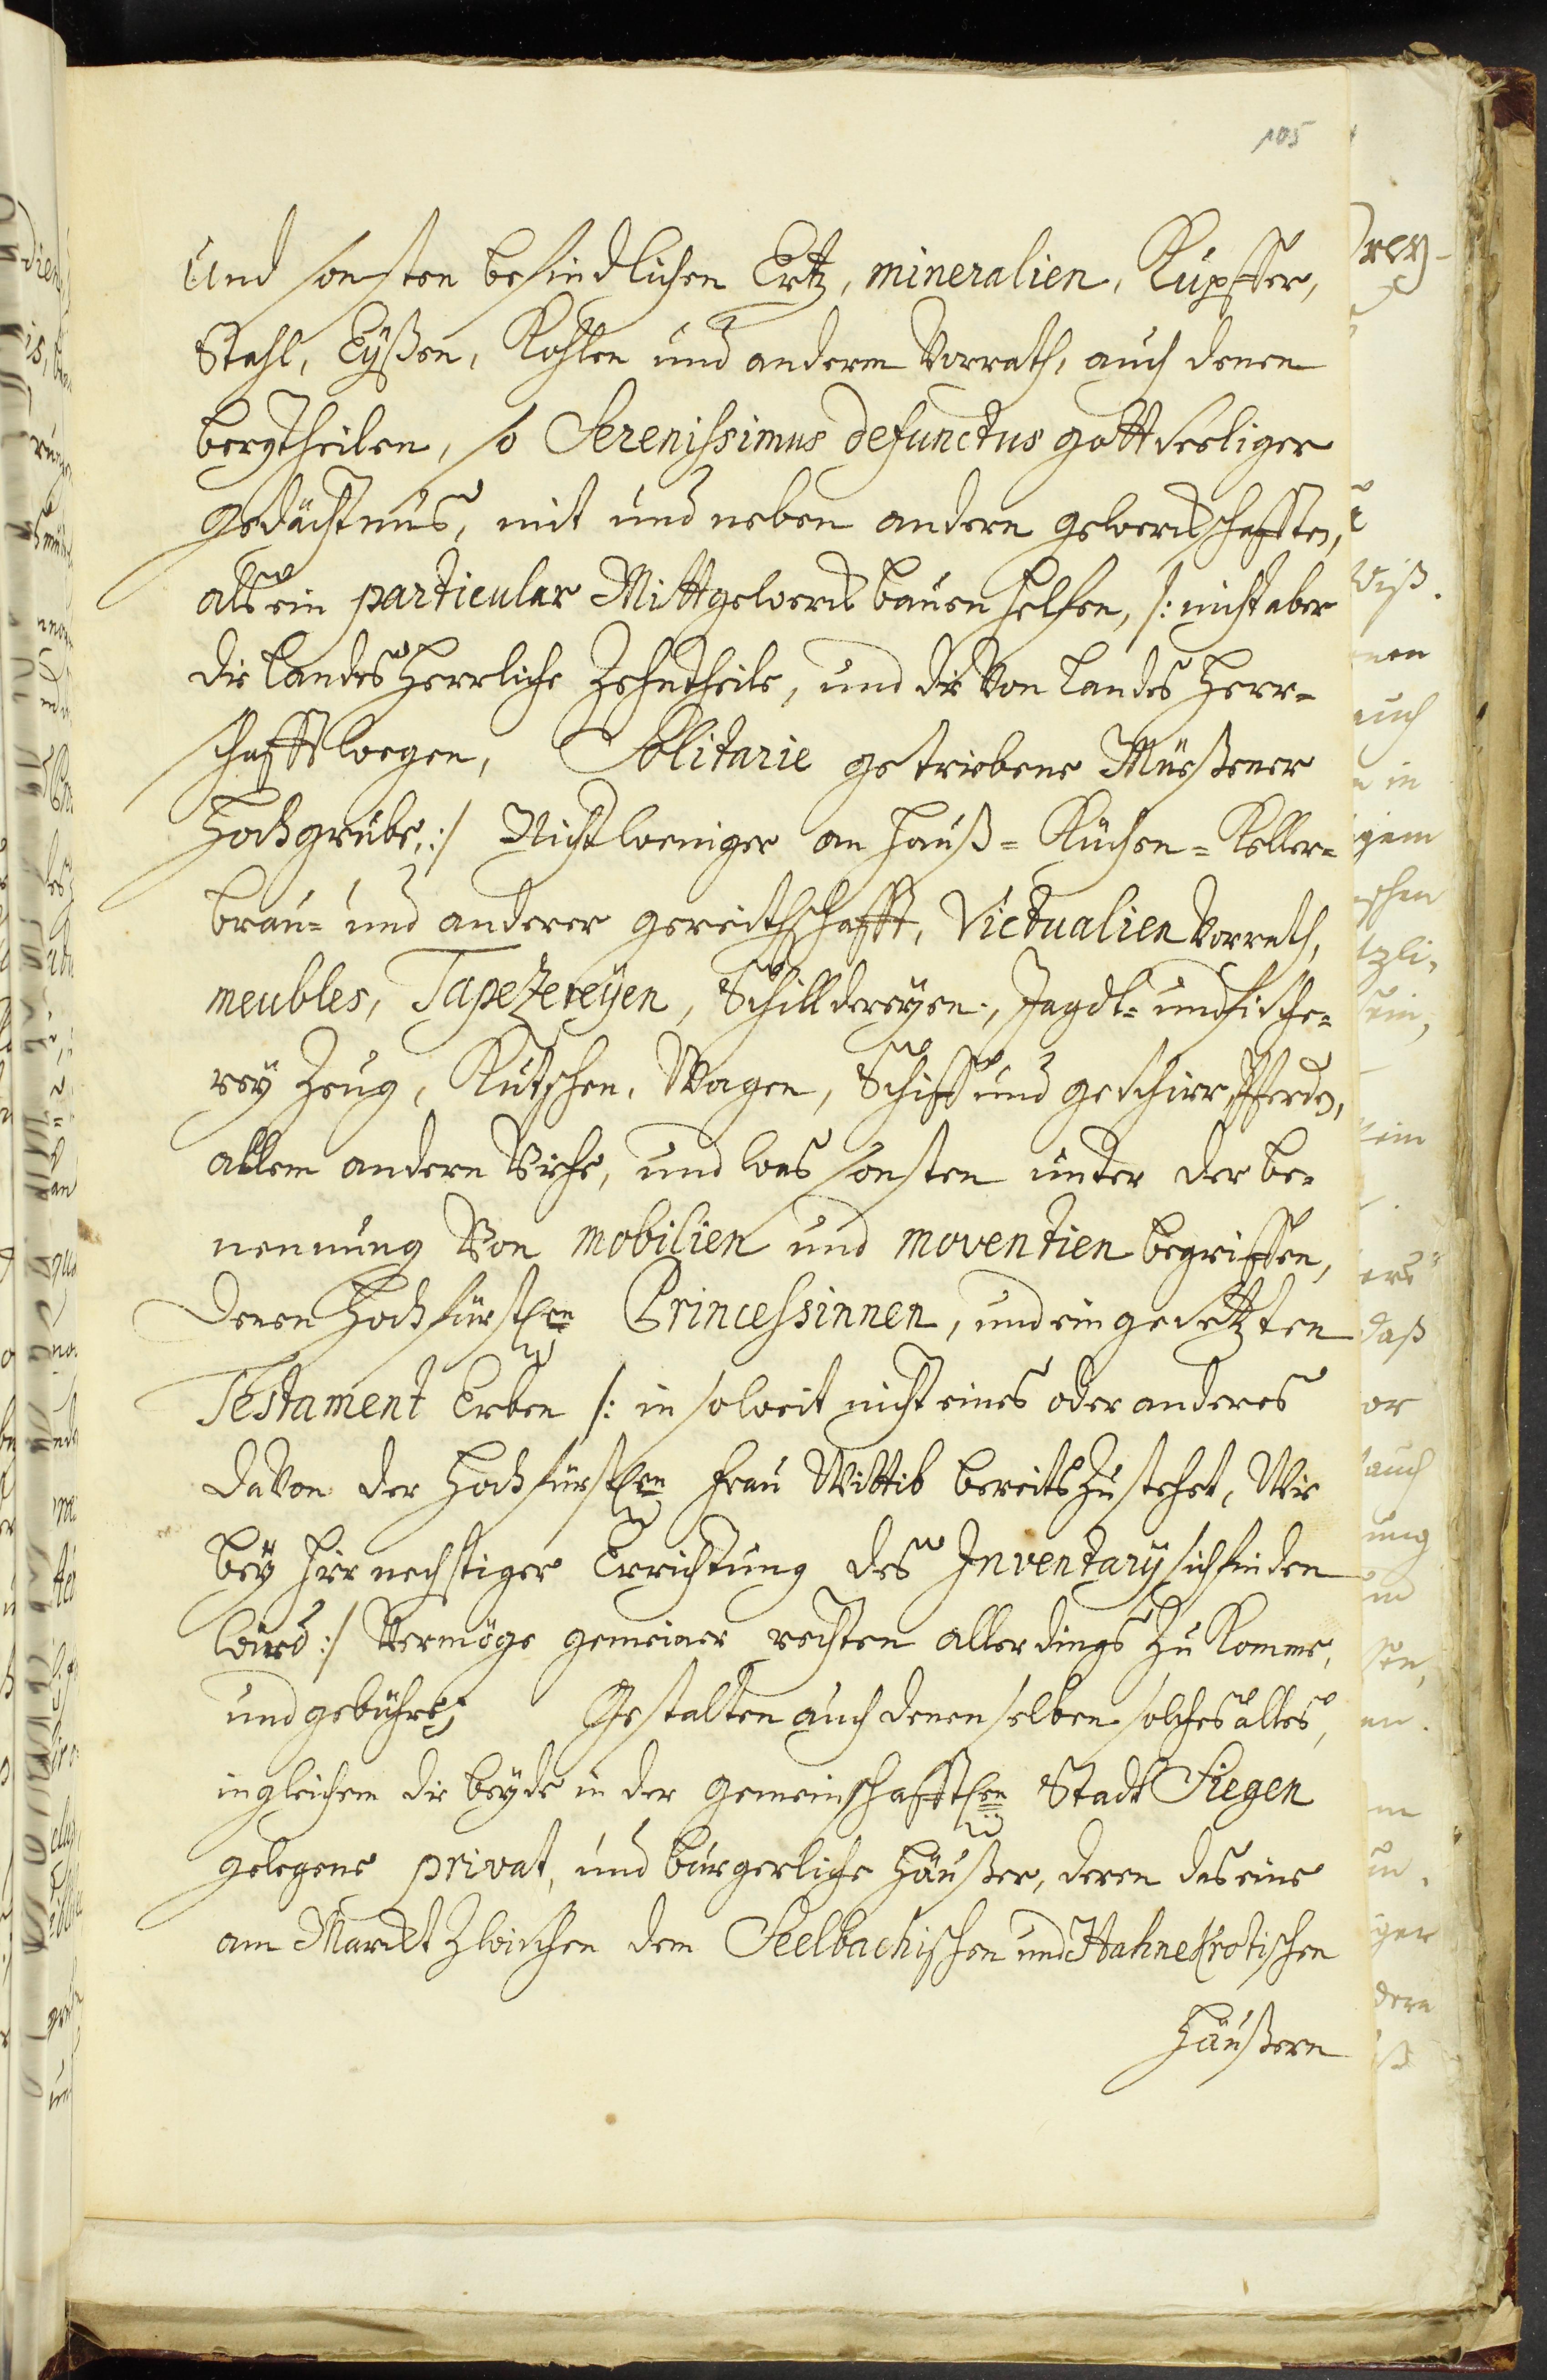 105
Und sonsten befindlichen Ertz, mineralien, Kupffer,
Stahl, Eyßen, Kohlen und anderm Vorrath, auch denen
bergtheilen, so Serenissimus defunctus gottseeliger
gedächtnus, mit und neben andern gewerckschafften,
als ein particular Mittgewerck bauen helfen, /: nicht aber
die LandesHerrliche Zehntheile, und die Von Landes Herr=
schaffts wegen, Solitarie getriebene Müeßener
Hochgrube, :/ Nicht weniger an Hauß= Küchen= Keller=
brau= und anderer gereithschafft, Victualien Vorrath,
meubles, Tapezereyen, Schilldereyen, Jagdt= und fische=
rey Zeug, Kutschen, Wagen, Schiff und geschirr, Pferden,
allem andern Viehe, und was sonsten unter der be=
nennung Von mobilien und moventien begriffen,
denen Hochfürstlen Princessinnen, und eingesetzten
Testament Erben /: in soweit nicht eines oder anderes
daVon der Hochfürstlen Frau Wittib bereits Zustehet, Wie
bey hier nechstiger Errichtung des Inventarÿ sich finden
wird :/ Vermöge gemeiner rechten allerdings Zu Komme,
und gebühre; Gestalten auch denenselben solches alles,
ingleichem die beyde in der gemeinschafftlen Stadt Siegen
gelegene privat, und bürgerliche Häußer, deren das eine
am Marckt Zwischen dem Seelbachischen und Hahnekrotischen
Häußern